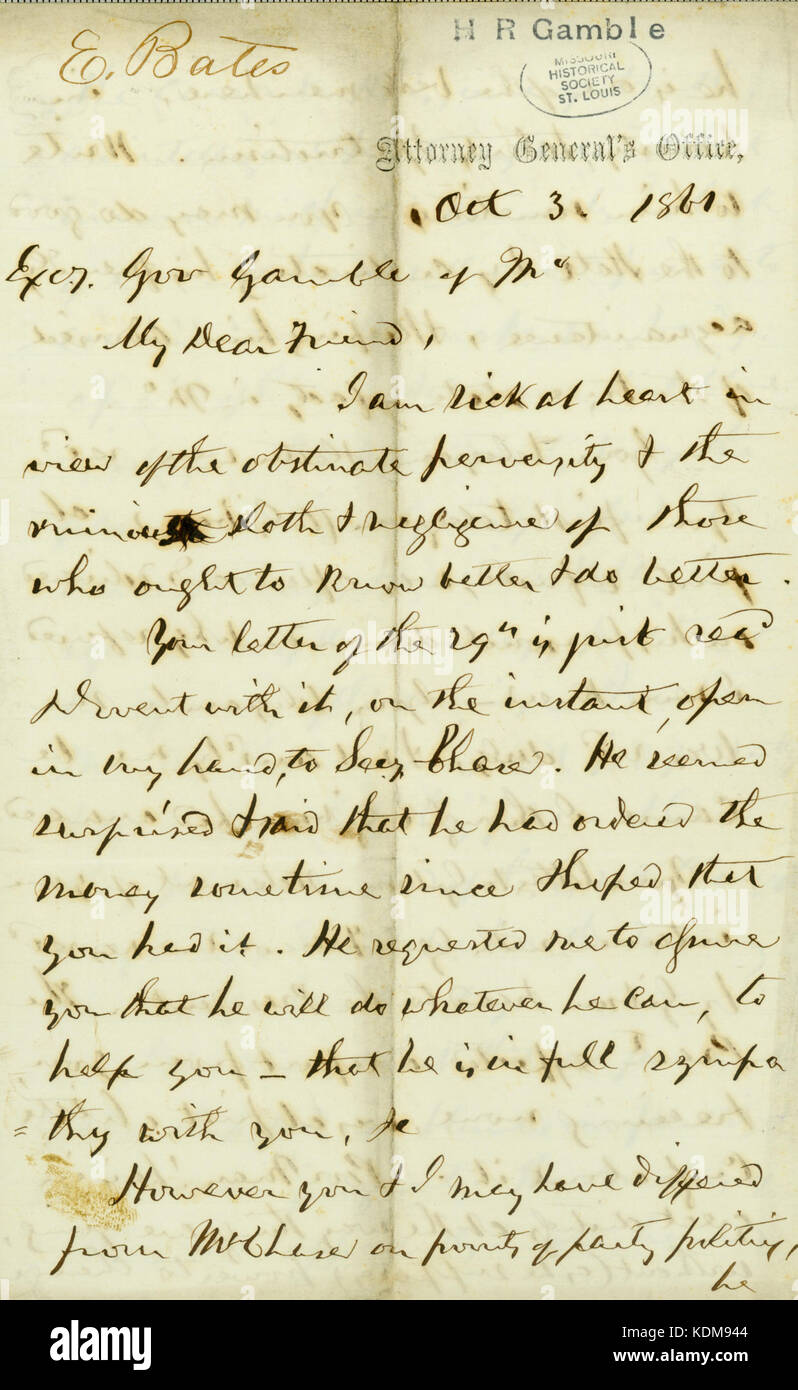 E. Bates
H R Gamble
MISSOURI
HISTORICAL
SOCIETY
ST. LOUIS
Attorney General's Office,
Oct 3. 1861.
Excy. Gov Gamble of Mo
My Dear Friend,
I am sick at heart in
view of the obstinate perversity & the
ruinous sloth & negligence of those
who ought to know better & do better.
Your letter of the 29th is just recd
& I went with it, on the instant, open
in my hand, to Secy. Chase. He seemed
surprised & said that he had ordered the
money sometime since & hoped that
you had it. He requested me to assure
you that he will do whatever he can, to
help you — that he is in full sympa
= thy with you, &c
However you & I may have differed
from Mr Chase on points of party politics,
he
alamy
Image ID: KDM944
www.alamy.com